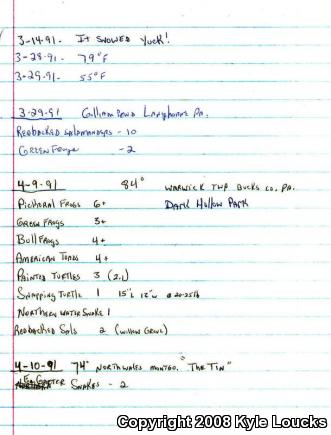 3-14-91- IT SNOWED YUCK!
3-28-91- 79°F
3-29-91- 55°F
3-29-91 Langhorne PA.
REDBACKED SALAMANDERS - 10
GREEN Frogs - 2
4-9-91 84° WARWICK TWP BUCKS CO, PA.
PICKERAL FROGS 6+ DARK HOLLOW PARK
GREEN FROGS 3+
BULL FROGS 4+
AMERICAN TOADS 4+
PAINTED TURTLES 3 (2.1)
SNAPPING TURTLE 1 15"L 12"W @ 20-25lb
NORTHERN WATER SNAKE 1
REDBACKED SALS 2 (WILLOW GROVE)
4-10-91 74° NORTH WALES MONTGO. "THE TIN"
GARTER SNAKES - 2
Copyright 2008 Kyle Loucks